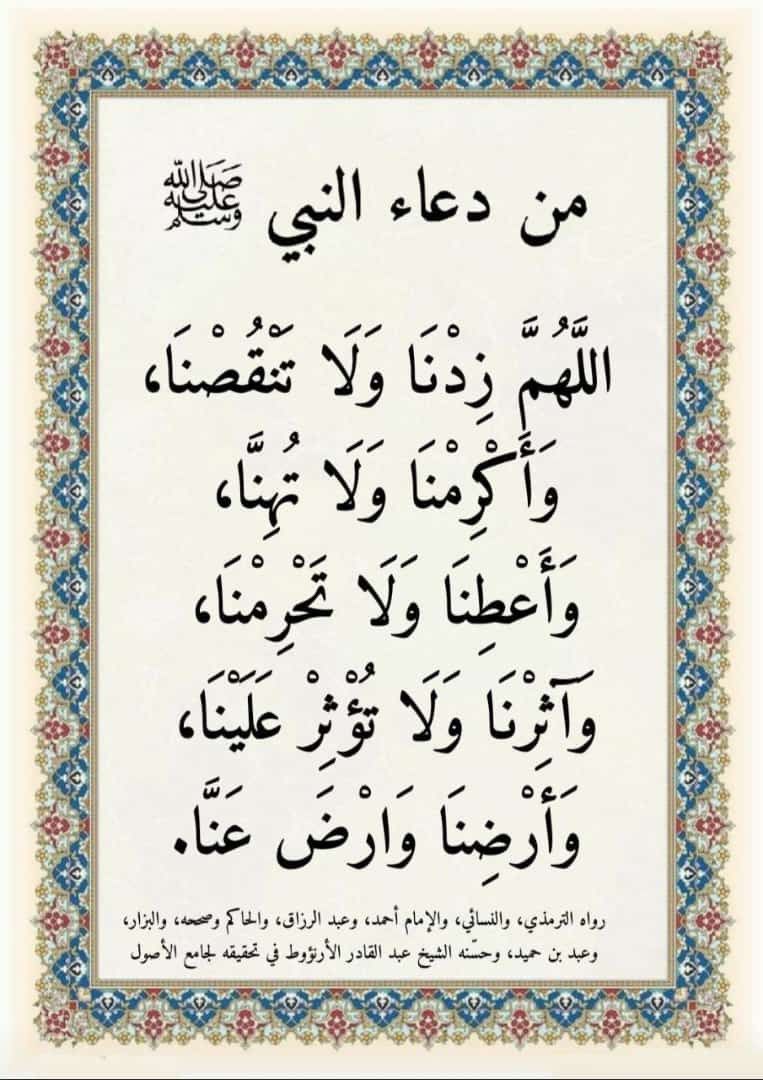 من دعاء النبي ﷺ
اللَّهُمَّ زِدْنَا وَلَا تَنْقُصْنَا،
وَأَكْرِمْنَا وَلَا تُهِنَّا،
وَأَعْطِنَا وَلَا تَحْرِمْنَا،
وَآثِرْنَا وَلَا تُؤْثِرْ عَلَيْنَا،
وَأَرْضِنَا وَارْضَ عَنَّا.
رواه الترمذي، والنسائي، والإمام أحمد، وعبد الرزاق، والحاكم وصححه، والبزار،
وعبد بن حميد، وحسّنه الشيخ عبد القادر الأرنؤوط في تحقيقه لجامع الأصول